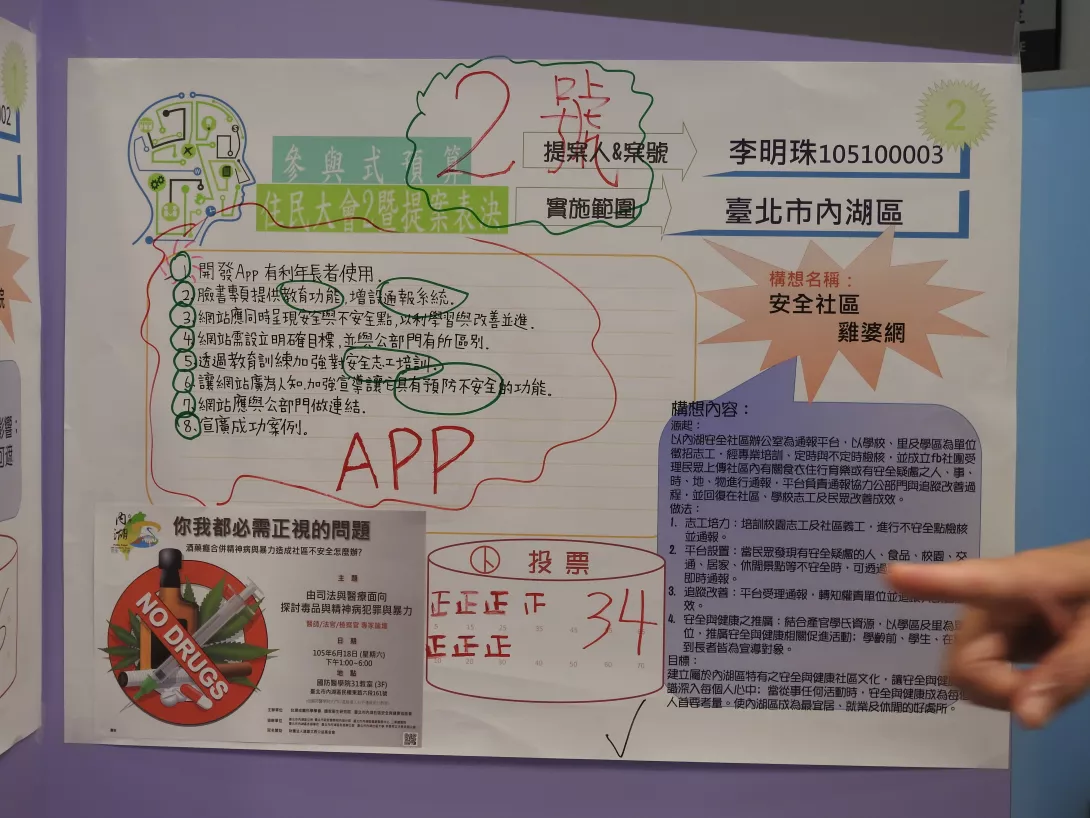 2號
2
參與式預算
住民大會?暨提案表決
提案人&案號
李明珠105100003
實施範圍
臺北市內湖區
構想名稱：
安全社區
雞婆網
1. 開發App有利年長者使用.
2. 臉書專頁提供教育功能,增設通報系統.
3. 網站應同時呈現安全與不安全點,以利學習與改善並進.
4. 網站需設立明確目標,並與公部門有所區別.
5. 透過教育訓練加強對安全志工培訓.
6. 讓網站廣為人知,加強宣導讓它具有預防不安全的功能.
7. 網站應與公部門做連結.
8. 宣廣成功案例.
APP
構想內容：
緣起：
以內湖安全社區辦公室為通報平台，以學校、里及學區為單位
徵招志工，經專業培訓，定時與不定時檢核，並成立fb社團受
理民眾上傳社區內有關食衣住行育樂或有安全疑慮之人、事、
時、地、物進行通報，平台負責通報協力公部門與追蹤改善過
程，並回復在社區、學校志工及民眾改善成效。
做法：
1. 志工培力：培訓校園志工及社區義工，進行不安全點檢核
並通報。
2. 平台設置：當民眾發現有安全疑慮的人、食品、校園、交
通、居家、休閒景點等不安全時，可透過
即時通報。
3. 追蹤改善：平台受理通報，轉知權責單位並追蹤
效。
4. 安全與健康之推廣：結合產官學民資源，以學區及里為單
位，推廣安全與健康相關促進活動；學齡前、學生、在
到長者皆為宣導對象。
目標：
建立屬於內湖區特有之安全與健康社區文化，讓安全與健
識深入每個人心中；當從事任何活動時，安全與健康成為每個
人首要考量。使內湖區成為最宜居、就業及休閒的好處所。
內湖
你我都必需正視的問題
酒藥癮合併精神病與暴力造成社區不安全怎麼辦?
主 題
由司法與醫療面向
探討毒品與精神病犯罪與暴力
醫師/法官/檢察官 專家論壇
日 期
105年6月18日 (星期六)
下午1:00~6:00
地 點
國防醫學院31教室 (3F)
臺北市內湖區民權東路六段161號
NO DRUGS
投票
正正正正
正正正
34